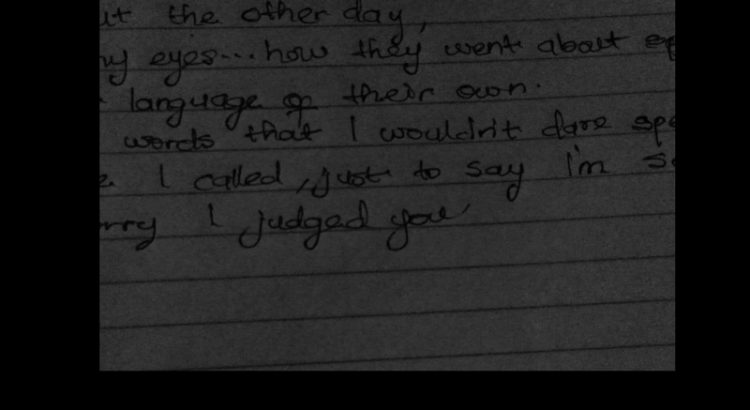 the other day,
eyes...how they went about
language of their own.
words that I wouldn't dare
I called, just to say i'm
I judged you